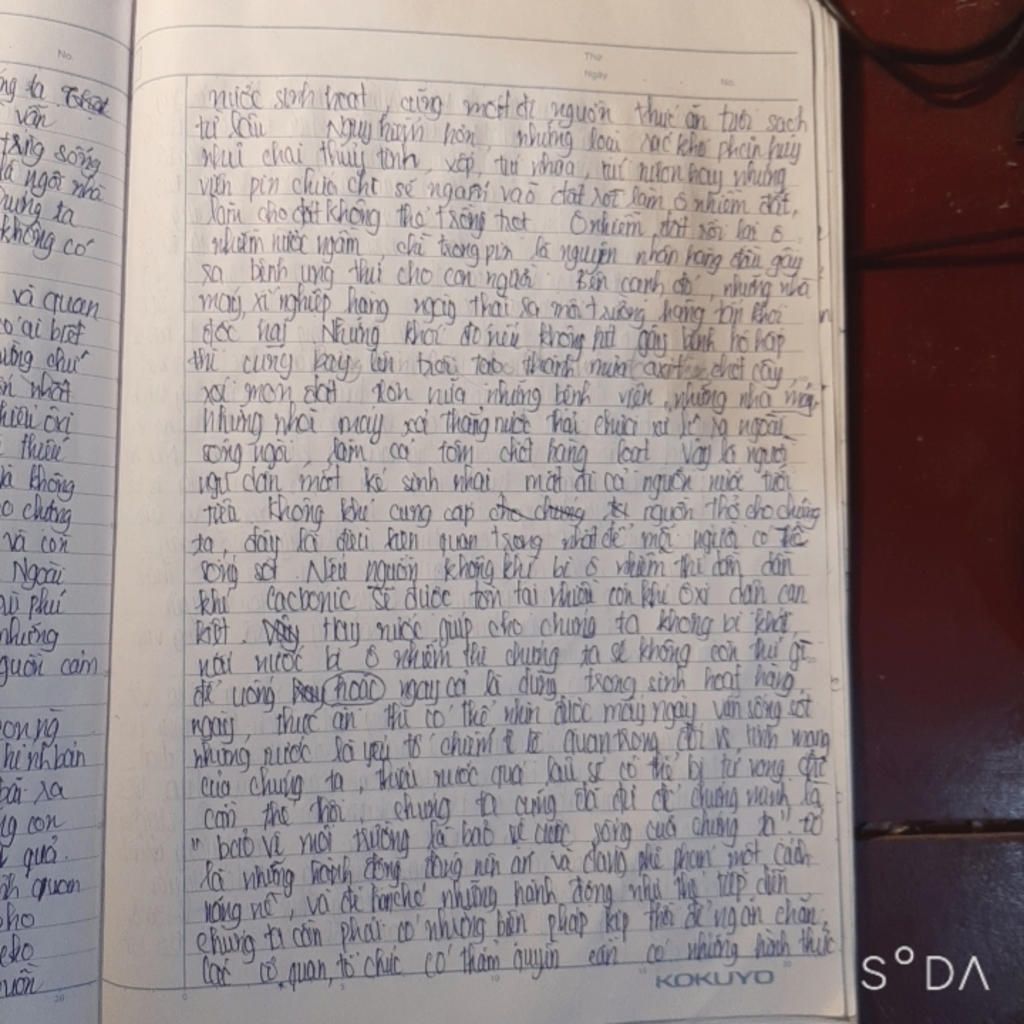 No.
Thứ
Ngày
No.
ng ta
vẫn
trừg sống
là ngôi nhà
chúng ta
không có
và quan
có ai biết
uông chủ
ên nhất
thiếu ôxi
thiếu
và không
o chúng
và còn
Ngoài
phí
những
guồn cảm
con ng
hình bản
bãi xa
ng con
quả.
quan
cho
cho
uồn
nước sinh hoạt, cũng mất đi nguồn thức ăn tươi sạch
từ lâu Nguy hiểm hơn, những loại rác khó phân hủy
như chai thủy tinh, xốp, túi nhựa, túi nilon hay những
viên pin chứa chì sẽ ngấm vào đất rồi làm ô nhiễm đất,
làm cho đất không thể trồng trọt Ô nhiễm đất rồi lại ô
nhiễm nước ngầm chì trong pin là nguyên nhân hàng đầu gây
ra bệnh ung thư cho con người Bên cạnh đó, những nhà
máy, xí nghiệp hàng ngày thải ra môi trường hàng tấn khói
độc hại Những khói đó nếu không hít gây bệnh hô hấp
thì cũng bay lên trời tạo thành mưa axit chết cây,
xói mòn đất Hơn nữa những bệnh viện, những nhà máy,
những nhà máy xả thẳng nước thải chưa xử lý ra ngoài
sông ngòi, làm cá tôm chết hàng loạt Vậy là người
ngư dân mất kế sinh nhai mất đi cả nguồn nước tưới
tiêu Không khí cung cấp nguồn thở cho chúng
ta, đây là điều kiện quan trọng nhất để mỗi người có thể
sống sót. Nếu nguồn không khí bị ô nhiễm thì dần dần
khí cacbonic sẽ được tồn tại nhiều còn khí ôxi dần cạn
kiệt. Hay nước giúp cho chúng ta không bị khát,
nếu nước bị ô nhiễm thì chúng ta sẽ không còn thứ gì
để uống hoặc ngay cả là dùng trong sinh hoạt hằng
ngày, thức ăn thì có thể nhịn được mấy ngày vẫn sống sót
nhưng nước là yếu tố chiếm tỉ lệ quan trọng đối với tính mạng
của chúng ta, thiếu nước quá lâu sẽ có thể bị tử vong.
cần thế thôi, chúng ta cũng đã đủ để chứng minh là
" bảo vệ môi trường là bảo vệ cuộc sống của chúng ta"
là những hành động đáng nên án và đáng phê phán một cách
nặng nề, và để hạn chế những hành động như thế tiếp diễn
chúng ta cần phải có những biện pháp kịp thời để ngăn chặn,
các cơ quan, tổ chức có thẩm quyền cần có những hình thức
KOKUYO
S°DA